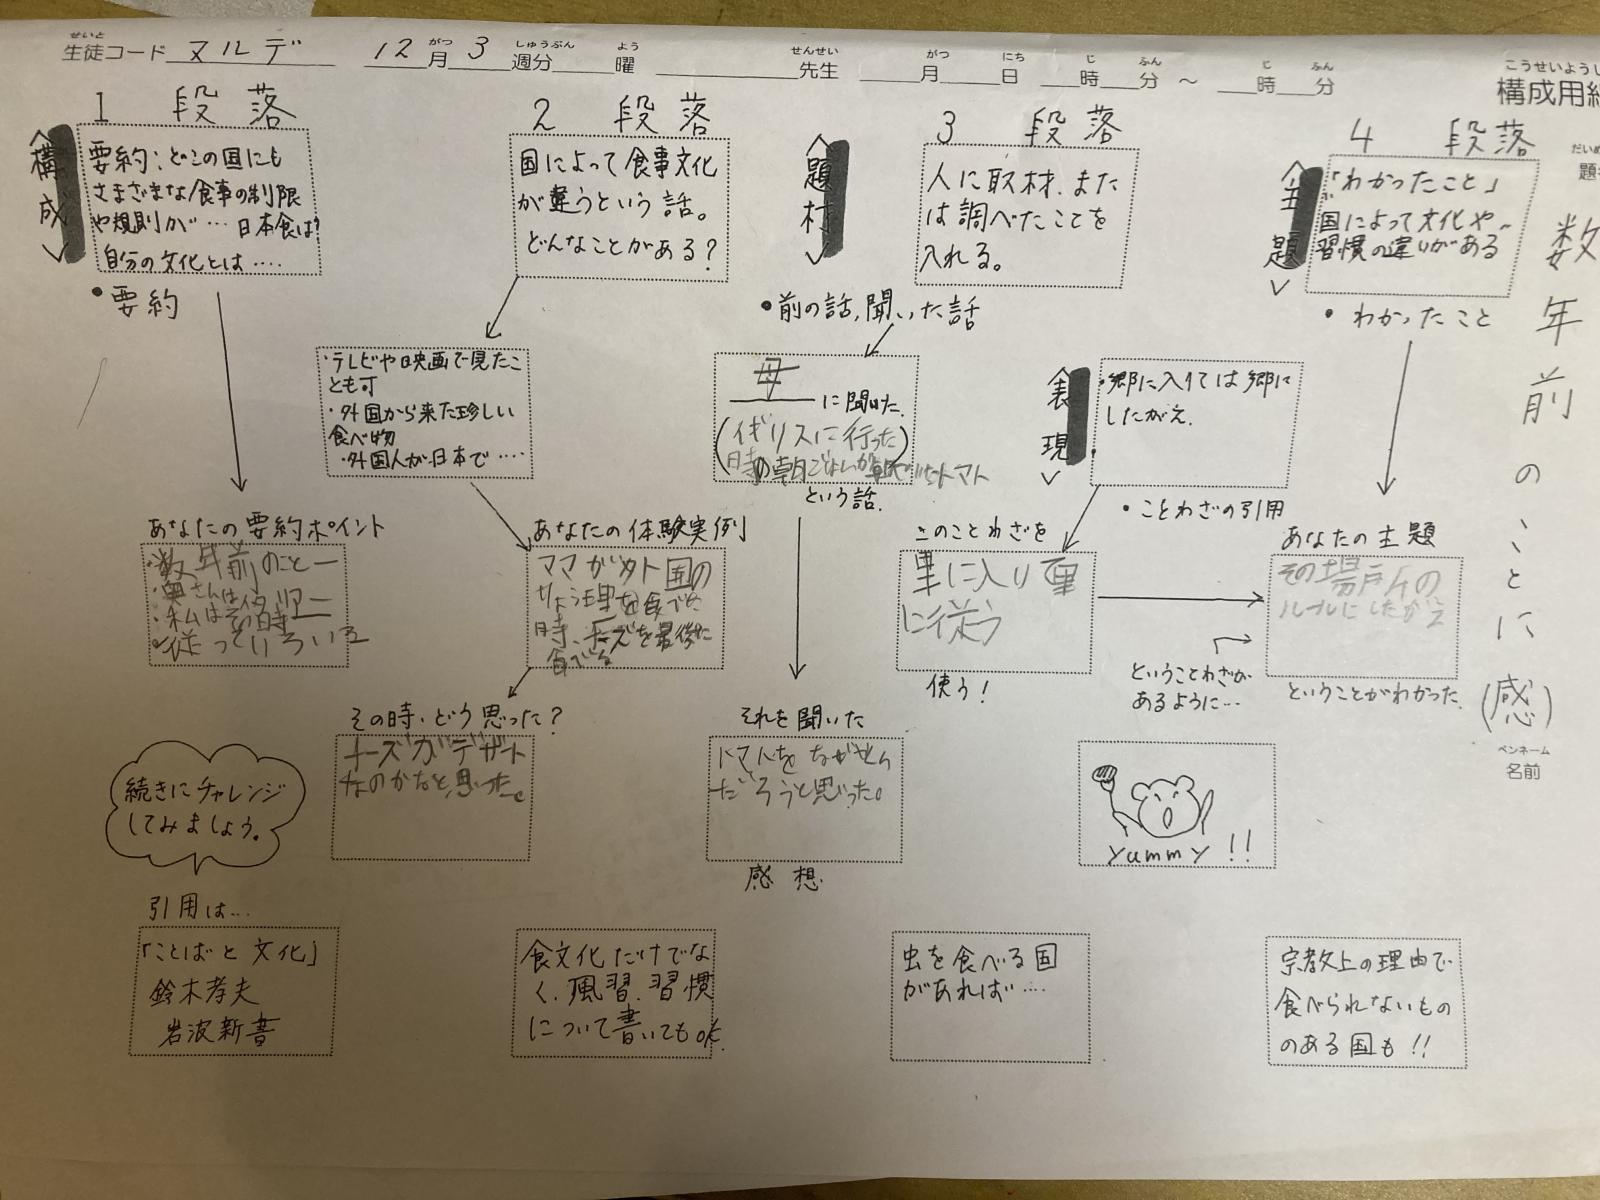 せいと
生徒コード ヌルデ 12月 3週分 曜 先生 月 日 時 分 ～ 時 分
がつ しゅうぶん よう せんせい がつ にち じ ふん じ ふん
こうせいようし
構成用紙
1 段落
〈構成〉
要約:どこの国にも
さまざまな食事の制限
や規則が… 日本食は?
自分の文化とは….
・要約
あなたの要約ポイント
・数年前のこと一
・奥さんは
・私はその時
・従っていろいろ
2 段落
国によって食事文化
が違うという話。
どんなことがある?
・テレビや映画で見たこ
とも可
・外国から来た珍しい
食べ物
・外国人が日本で….
あなたの体験実例
ママが外国の
りょう理を食べた
時、チーズを最後に
食べる
その時、どう思った?
チーズがデザート
なのかなと思った。
〈題材〉
3 段落
人に取材、また
は調べたことを
入れる。
・前の話,聞いた話
母
に聞いた.
(イギリスに行った
時の朝ごはんが
トマト
という話.
それを聞いた
トマトをなぜ
だろうと思った。
感想.
〈表現〉
・郷に入りては郷に
したがえ.
・ことわざの引用
このことわざを
里に入り里
に従う
使う!
ということわざが
あるように…
〈主題〉
4 段落
「わかったこと」
国によって文化や
習慣の違いがある
・わかったこと
あなたの主題
その場所の
ルールにしたがう
ということがわかった.
yummy!!
だいめ
題
数年前のことに(感)
ペンネーム
名前
続きにチャレンジ
してみましょう。
引用は…
「ことばと文化」
鈴木孝夫
岩波新書
食文化だけでな
く、風習、習慣
について書いてもOK.
虫を食べる国
があれば….
宗教上の理由で
食べられないもの
のある国も!!